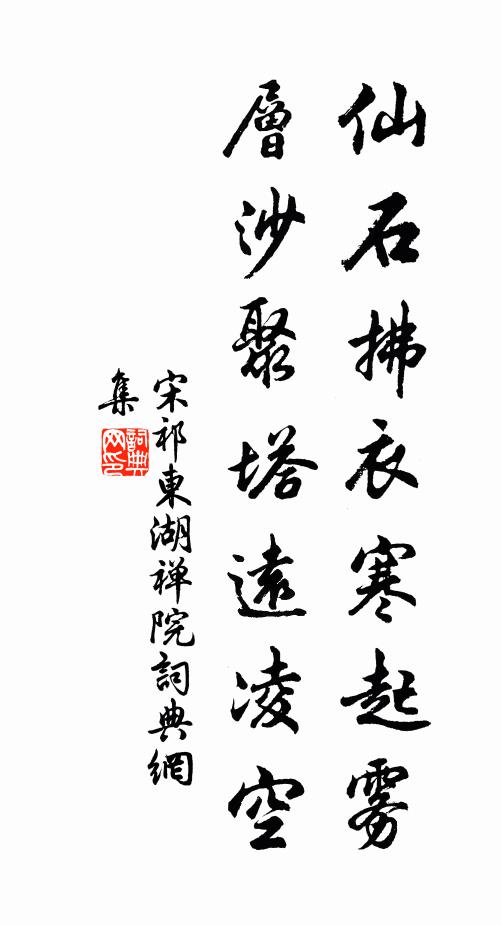 仙石拂衣寒起雾
層沙聚塔遠凌空
宋祁東湖禅院詞典網
集
詞典網印